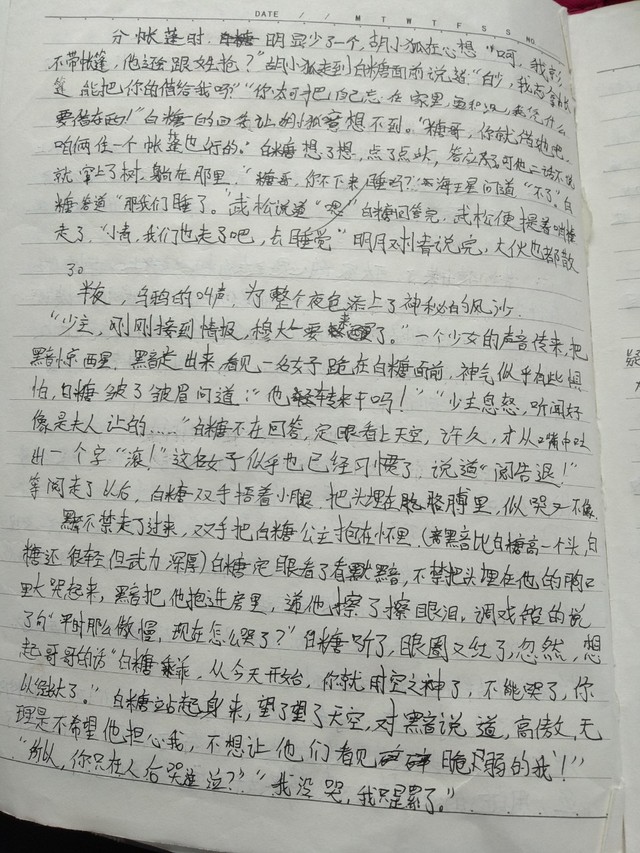 DATE / / M T W T F S S NO.
分帐篷时,明显少了一个,胡小狐在心想"呵,我京
不带帐篷,他还跟姓抢?"胡小狐走到白糖面前说道"白少,我忘拿帐
篷 能把你的借给我吗?""你太可把自己忘在家里,
要借东西!"白糖的回答让胡小狐意想不到。"糖哥,你就借她吧,
咱俩住一个帐篷也行的。"白糖想了想,点了点头,答应了可他二话不说
就窜上了树,躺在那里,"糖哥,你不下来睡吗?"海王星问道"不了。"白
糖答道"那我们睡了。"武松说道"嗯"白糖回答完,武松便提着
走了,"小青,我们也走了吧,去睡觉"明月对青说完,大伙也都散
了。
半夜,乌鸦的叫声,为整个夜色添上了神秘的风沙.
"少主,刚刚接到情报,穆大人要来了。"一个少女的声音传来,把
黑音惊西星,黑音走出来,看见一名女子跪在白糖面前,神气似乎有些惧
怕,白糖皱了皱眉问道:"他转来干吗!""少主息怒,听闻好
像是夫人让的……"白糖不在回答,定眼看上天空,许久,才从嘴中吐
出一个字"滚!"这名女子似乎也已经习惯了,说道"阅告退!"
等阅走了以后,白糖双手捂着小腿,把头埋在胳膊里,似哭又不像,
黯不禁走了过来,双手把白糖公主抱在怀里.(黑音比白糖高一个头,白
糖还很轻但武力深厚)白糖定眼看了看黑音,不禁把头埋在他的胸口
里大哭起来,黑音把他抱进房里,道他擦了擦眼泪,调戏般的说
了句"平时那么傲慢,现在怎么哭了?"白糖听了,眼圈又红了,忽然,想
起哥哥的话"白糖乖,从今天开始,你就用空之神了,不能哭了,你
以经大了。"白糖站起身来,望了望了天空,对黑音说道,高傲,无
理是不希望他担心我,不想让他们看见脆弱的我!"
"所以,你只在人后哭泣?""我没哭,我只是累了。"
疑